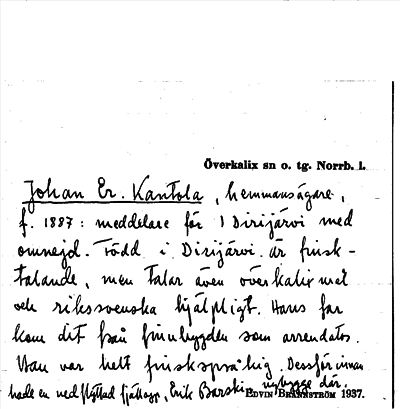 Överkalix sn o. tg. Norrb. l.
Johan Er. Kantola, hemmansägare,
f. 1887: meddelare för 1 Dirijärvi med
omnejd. Född i Dirijärvi. är finsk-
talande, men talar även överkalixmål
och rikssvenska hjälpligt. Hans far
kom dit från finnbygden som arrendator.
Han var helt finskspråkig. Dessförinnan
hade en nedflyttad fjällapp, Erik Barskin nybygge där.
EDVIN BRÄNNSTRÖM 1937.